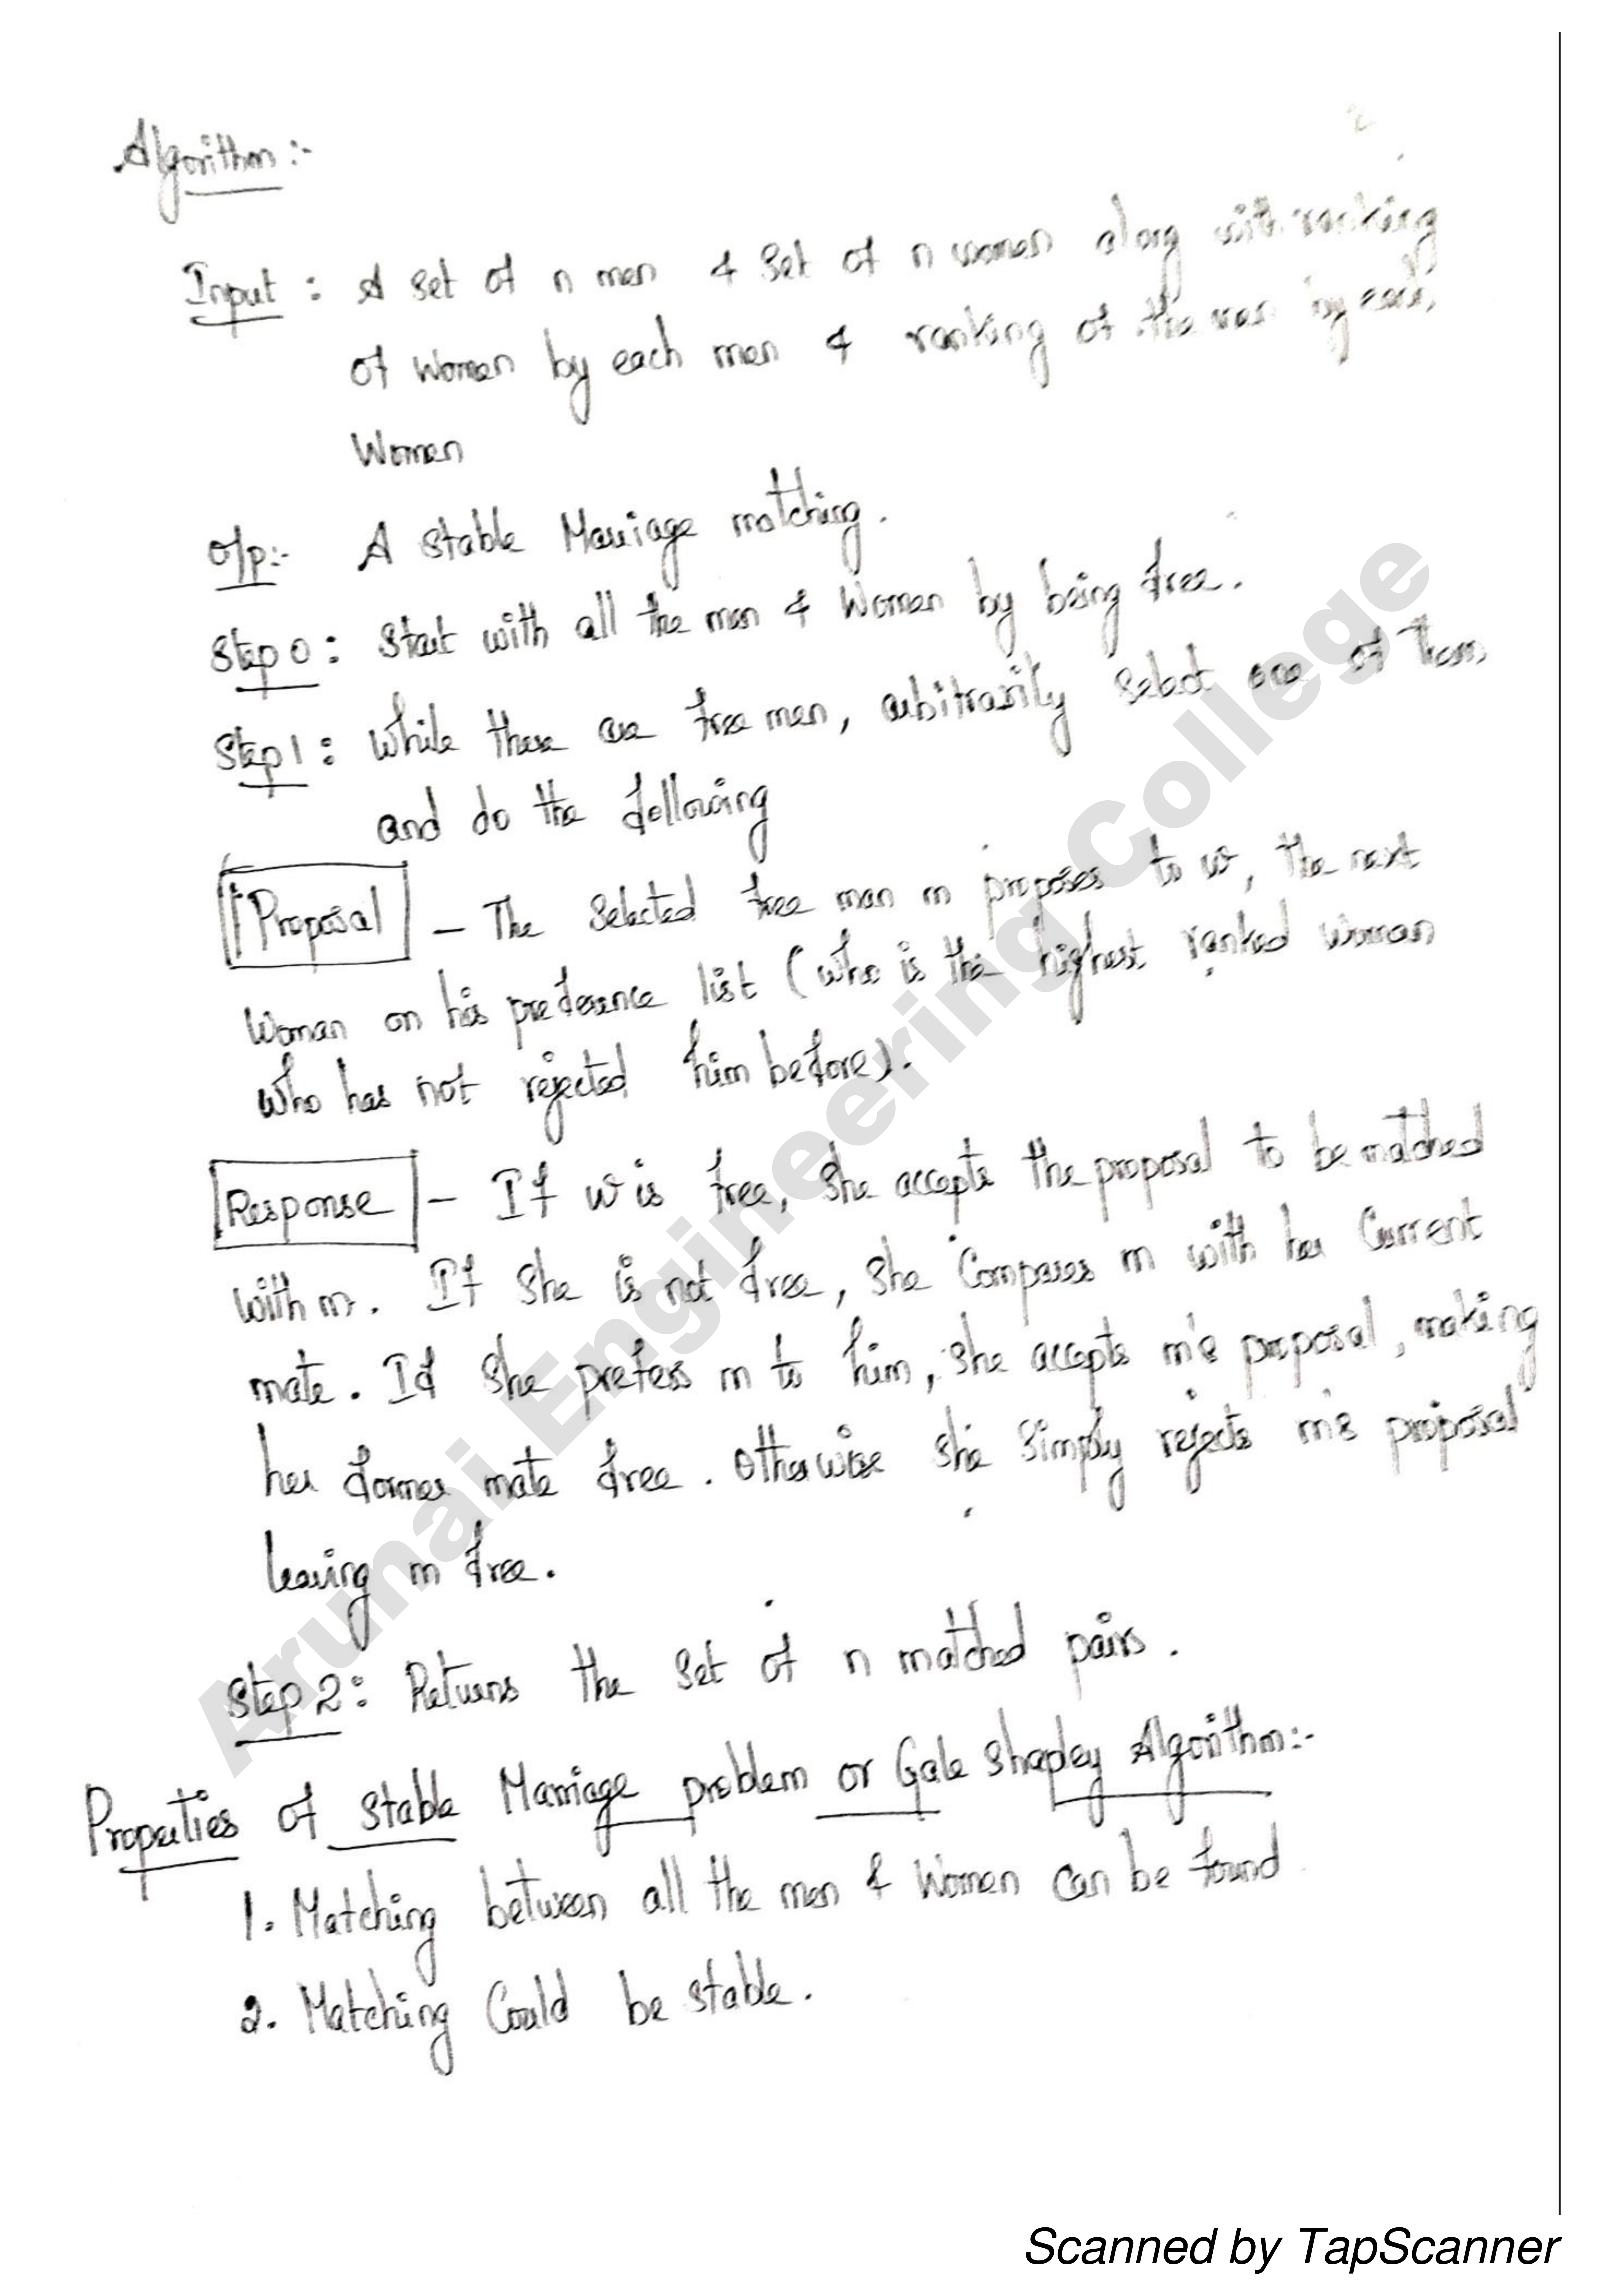 2
Algorithm :-
Input : A set of n men & set of n women along with ranking
of women by each men & ranking of the men by each
Women
O/p:- A stable Marriage matching.
Step 0 : Start with all the men & Women by being free.
Step 1 : While there are free men, arbitrarily select one of them
and do the following
Proposal – The selected free man m proposes to w, the next
Woman on his preference list (who is the highest ranked woman
who has not rejected him before).
Response – If w is free, she accepts the proposal to be matched
with m. If she is not free, she Compares m with her Current
mate. If she prefers m to him, she accepts m's proposal, making
her former mate free. Otherwise she simply rejects m's proposal
leaving m free.
Step 2 : Returns the set of n matched pairs.
Properties of stable Marriage problem or Gale Shapley Algorithm:-
1. Matching between all the men & Women can be found
2. Matching Could be stable.
Arunai Engineering College
Scanned by TapScanner